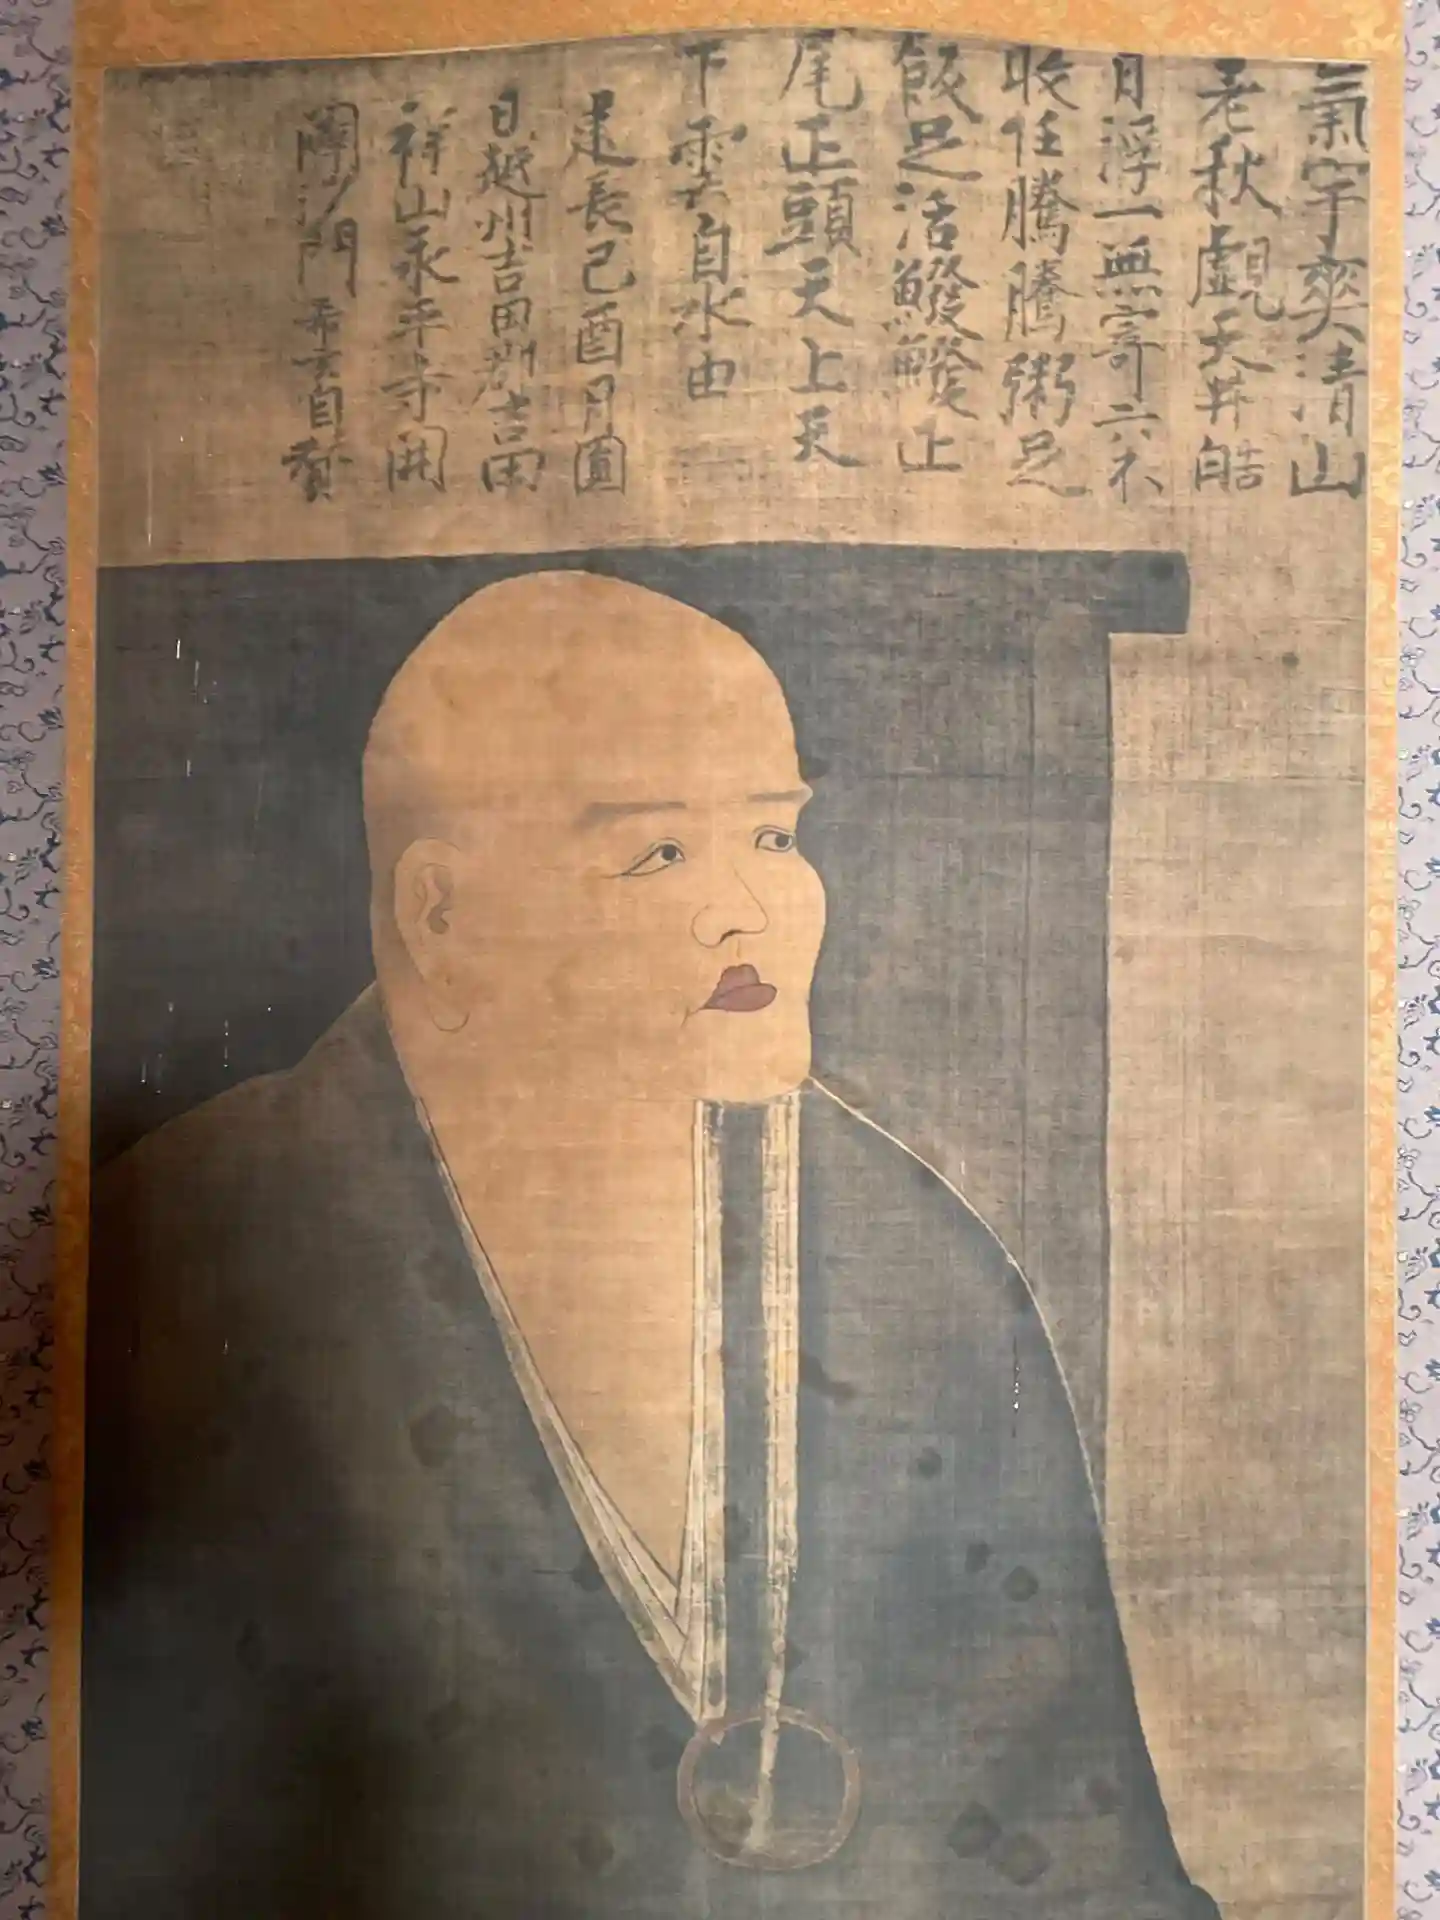 氣宇爽清山
老秋覰天井皓
月浮一無寄六不
收任騰騰粥足
飯足活鱍鱍正
尾正頭天上天
下雲自水由
建長己酉月圓
日越州吉田郡吉田
祥山永平寺開
闢沙門希玄自贊